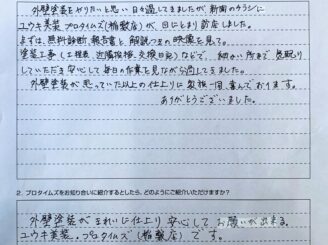 外壁塗装をやりたいと思い 日々過してましたが、新聞のチラシに
ユウキ美装 プロタイムズ(稲敷店)が 目にとまり訪店しました。
まずは、無料診断、報告書と 解説つきの映像を見て。
塗装工事(工程表、近隣挨拶、交換日記)などで、細かい所まで 気配り
していただき 安心して 毎日の作業を見ながら 過して来ました。
外壁塗装が 思っていた以上の仕上りに 家族一同、喜んでおります。
ありがとうございました。
2. プロタイムズをお知り合いに紹介するとしたら、どのようにご紹介いただけますか?
外壁塗装が きれいに仕上り 安心して お願いが出来る。
ユウキ美装、プロタイムズ(稲敷店)です。